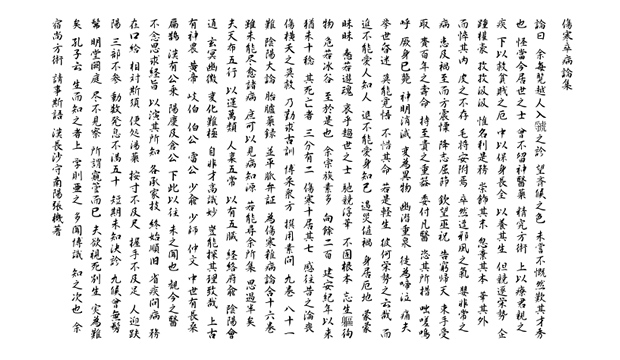 傷寒卒病論集
論曰 余每覽越人入虢之診 望齊候之色 未嘗不慨然歎其才秀
也 怪當今居世之士 曾不留神醫藥 精究方術 上以療君親之
疾 下以救貧賤之厄 中以保身長全 以養其生 但競逐榮勢 企
踵權豪 孜孜汲汲 惟名利是務 崇飾其末 忽棄其本 華其外
而悴其內 皮之不存 毛將安附焉 卒然遭邪風之氣 嬰非常之
病 患及禍至而方震慄 降志屈節 欽望巫祝 告窮歸天 束手受
敗 賫百年之壽命 持至貴之重器 委付凡醫 恣其所措 咄嗟嗚
呼 厥身已斃 神明消滅 變為異物 幽潛重泉 徒為啼泣 痛夫
舉世昏迷 莫能覺悟 不惜其命 若是輕生 彼何榮勢之云哉 而
進不能愛人知人 退不能愛身知己 遇災值禍 身居厄地 蒙蒙
昧昧 惷若遊魂 哀乎趨世之士 馳競浮華 不固根本 忘生軀徇
物 危若冰谷 至於是也 余宗族素多 向餘二百 建安紀年以來
猶未十稔 其死亡者 三分有二 傷寒十居其七 感往昔之淪喪
傷橫夭之莫救 乃勤求古訓 博采衆方 撰用素問 九卷 八十一
難 陰陽大論 胎臚藥錄 並平脈辨證 為傷寒雜病論合十六卷
雖未能盡愈諸病 庶可以見病知源 若能尋余所集 思過半矣
夫天布五行 以運萬類 人稟五常 以有五臟 經絡府俞 陰陽會
通 玄冥幽微 變化難極 自非才高識妙 豈能探其理致哉 上古
有神農 黃帝 岐伯 伯高 雷公 少俞 少師 仲文 中世有長桑
扁鵲 漢有公乘 陽慶及倉公 下此以往 未之聞也 觀今之醫
不念思求經旨 以演其所知 各承家技 終始順舊 省疾問病 務
在口給 相對斯須 便處湯藥 按寸不及尺 握手不及足 人迎趺
陽 三部不參 動數發息不滿五十 短期未知決診 九候曾無髣
髴 明堂闕庭 盡不見察 所謂窺管而已 夫欲視死別生 實為難
矣 孔子云 生而知之者上 學則亞之 多聞博識 知之次也 余
宿尚方術 請事斯語 漢長沙守南陽張機著